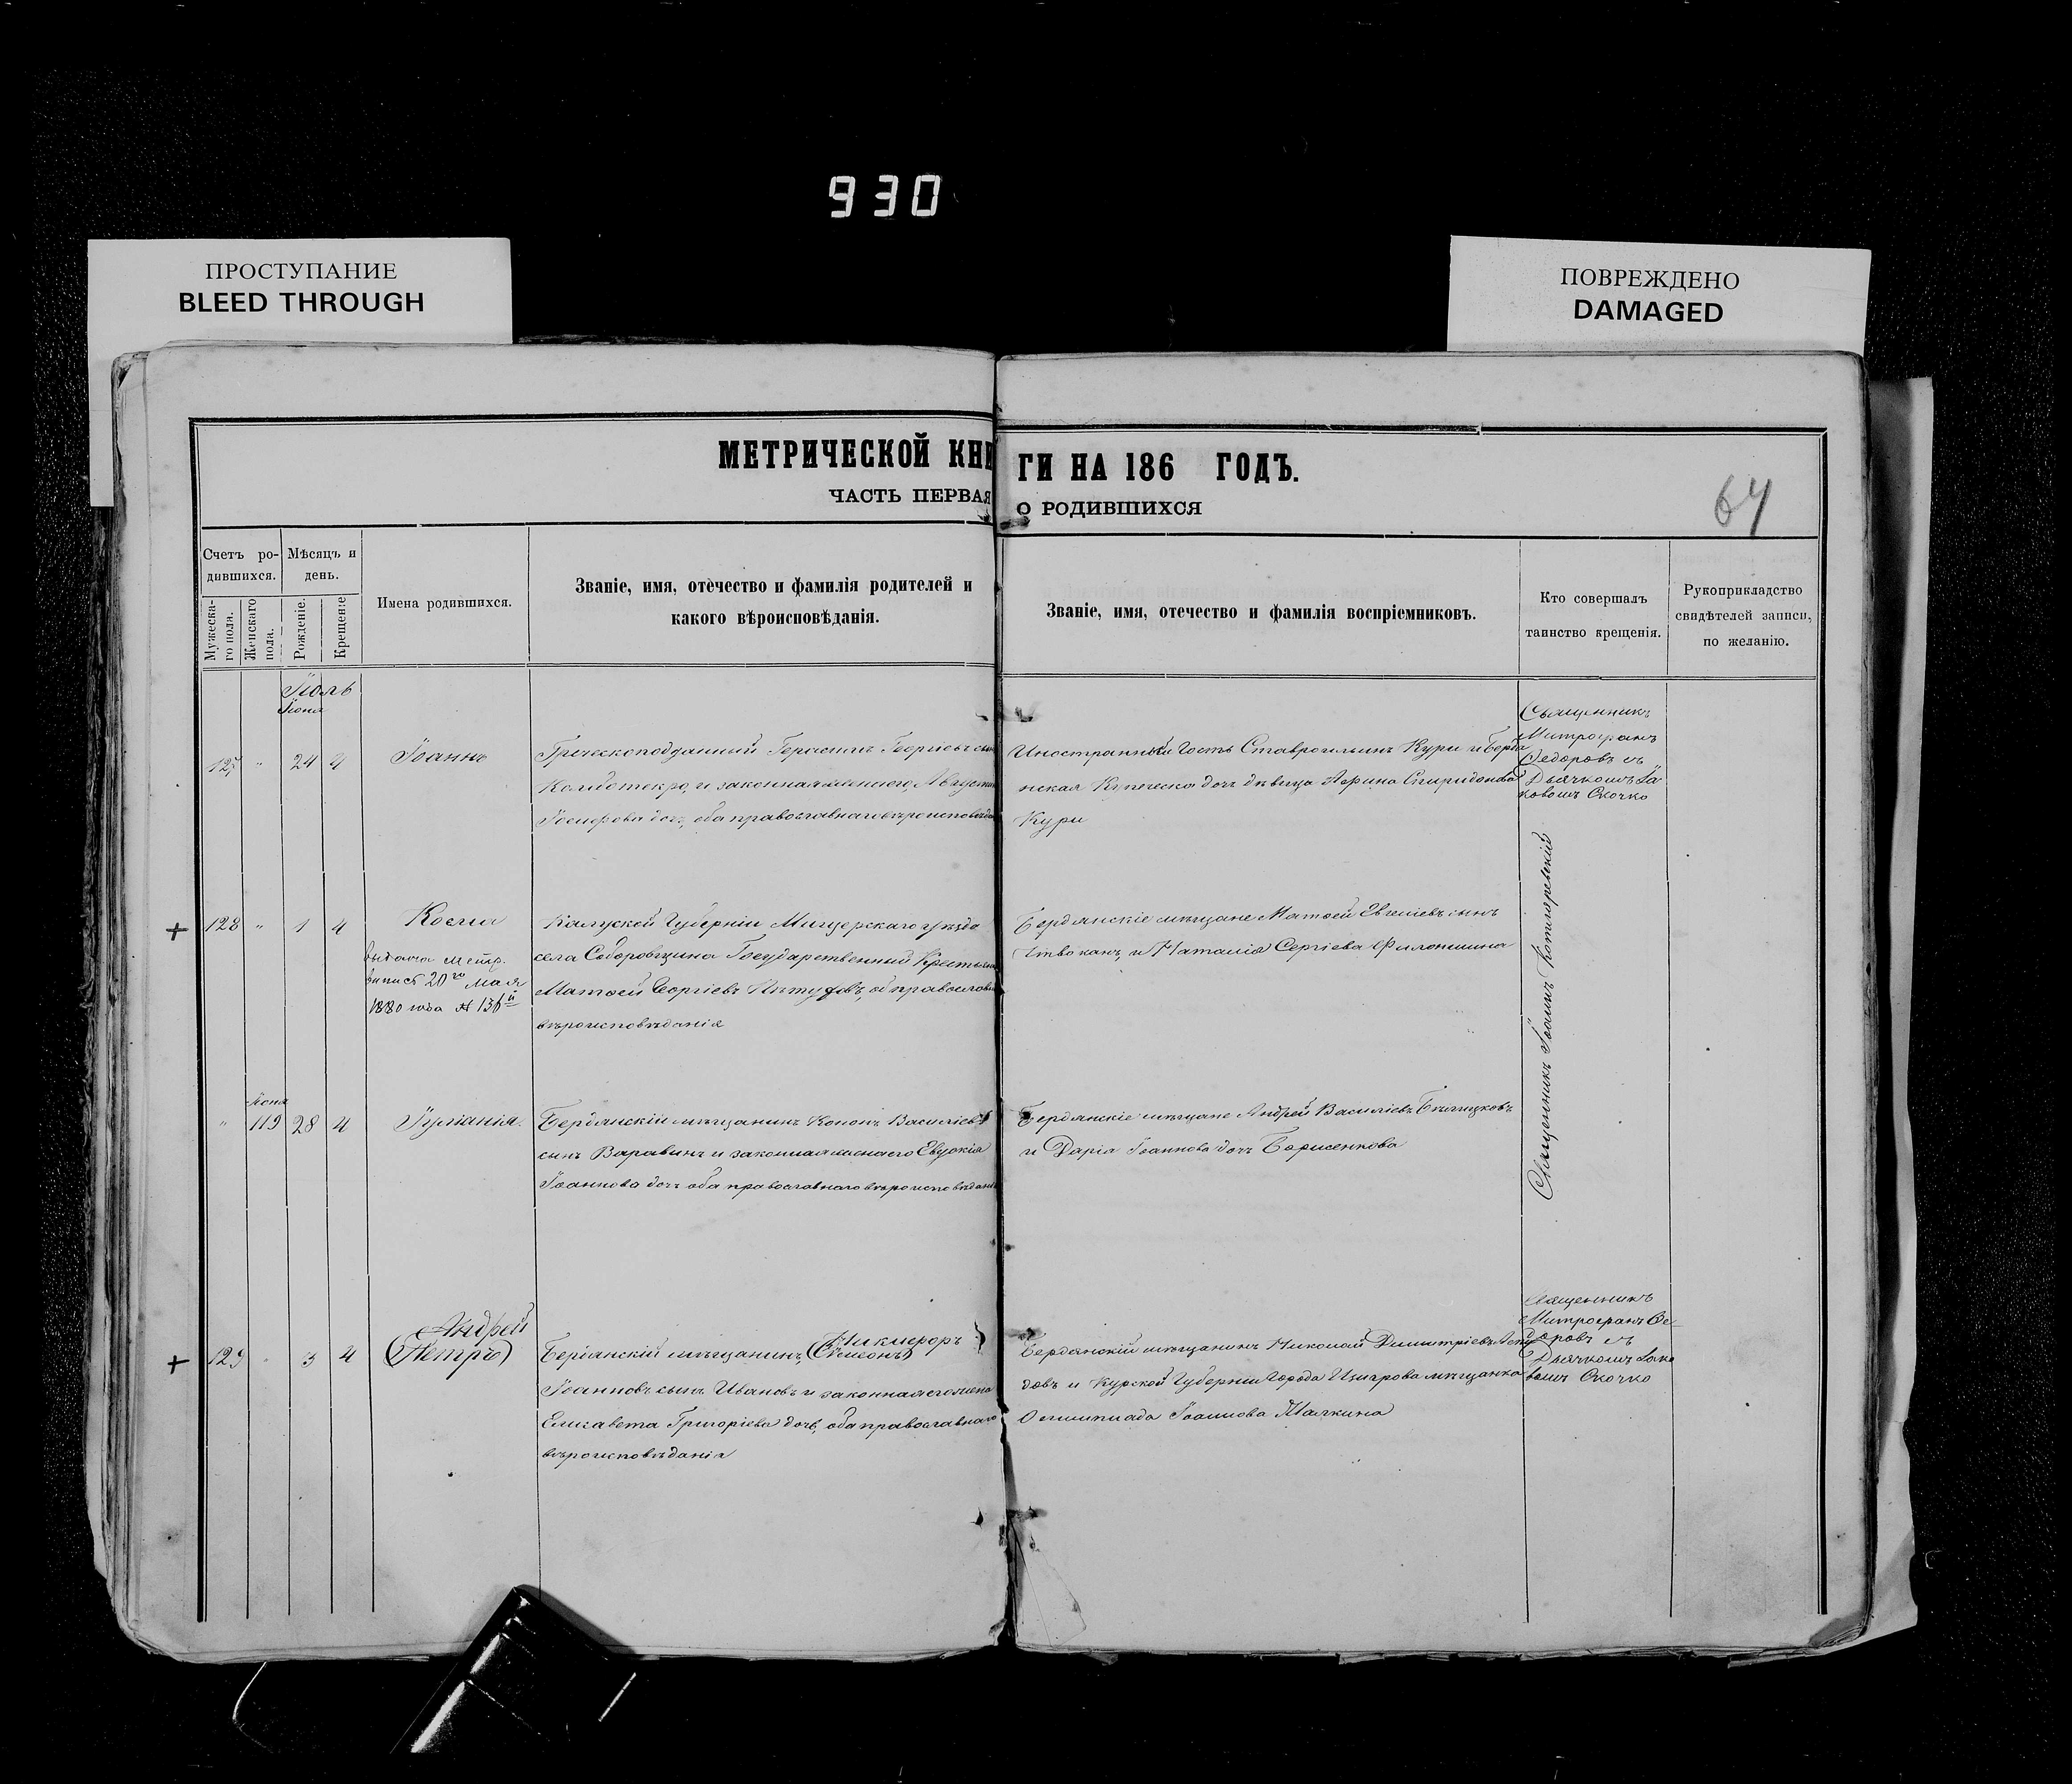 930
ПРОСТУПАНИЕ
BLEED THROUGH
ПОВРЕЖДЕНО
DAMAGED
МЕТРИЧЕСКОЙ КНИГИ НА 186 ГОДЪ.
ЧАСТЬ ПЕРВАЯ О РОДИВШИХСЯ
64
Счетъ ро-
дившихся.
Мужеска-
го пола.
Женскаго
пола.
Мѣсяцъ и
день.
Рожденіе.
Крещеніе
Имена родившихся.
Званіе, имя, отечество и фамилія родителей и
какого вѣроисповѣданія.
Званіе, имя, отечество и фамилія воспріемниковъ.
Кто совершалъ
таинство крещенія.
Рукоприкладство
свидѣтелей записи,
по желанію.
Іюль
Іюня
127 " 24 4 Іоаннъ
Греческоподданный Герасимъ Георгіевъ сынъ
и законная жена его
Іосифова дочь, оба православнаго вѣроисповѣданія
Иностранный Гость Ставро Кури и Бердя
нская Купеческа дочь дѣвица Спиридонова
Кури
Священникъ
Митрофанъ
Федоровъ съ
Дьячкомъ Іа
ковомъ Скочко
+ 128 " 1 4 Косма
выдана метр.
выпись 20го мая
1880 года № 136й
Калуской Губерніи уѣзда
села Государственный Крестьянинъ
Матѳей Георгіевъ православнаго
вѣроисповѣданія
Бердянскіе мѣщане Матѳей Евгеніевъ сынъ
и Наталія Сергіева
Священникъ Іоаннъ
Іюня
" 119 28 4 Іуліанія.
Бердянскій мѣщанинъ Кононъ Василіевъ
сынъ Варавинъ и законная жена его Евдокія
Іоаннова дочь оба православнаго вѣроисповѣданія
Бердянскіе мѣщане Андрей Василіевъ
и Дарія Іоаннова дочь Борисенкова
Андрей
+ 129 " 3 4 (Петръ)
Никифоръ
Бердянскій мѣщанинъ (Симеонъ)
Іоанновъ сынъ Ивановъ и законная его жена
Елисавета Григоріева дочь, оба православнаго
вѣроисповѣданія
Бердянскій мѣщанинъ Николай Димитріевъ
довъ и Курской Губерніи города Щигрова мѣщанка
Олимпиада Іоаннова
Священникъ
Митрофанъ Ѳе-
доровъ съ
Дьячкомъ Іако
вомъ Скочко